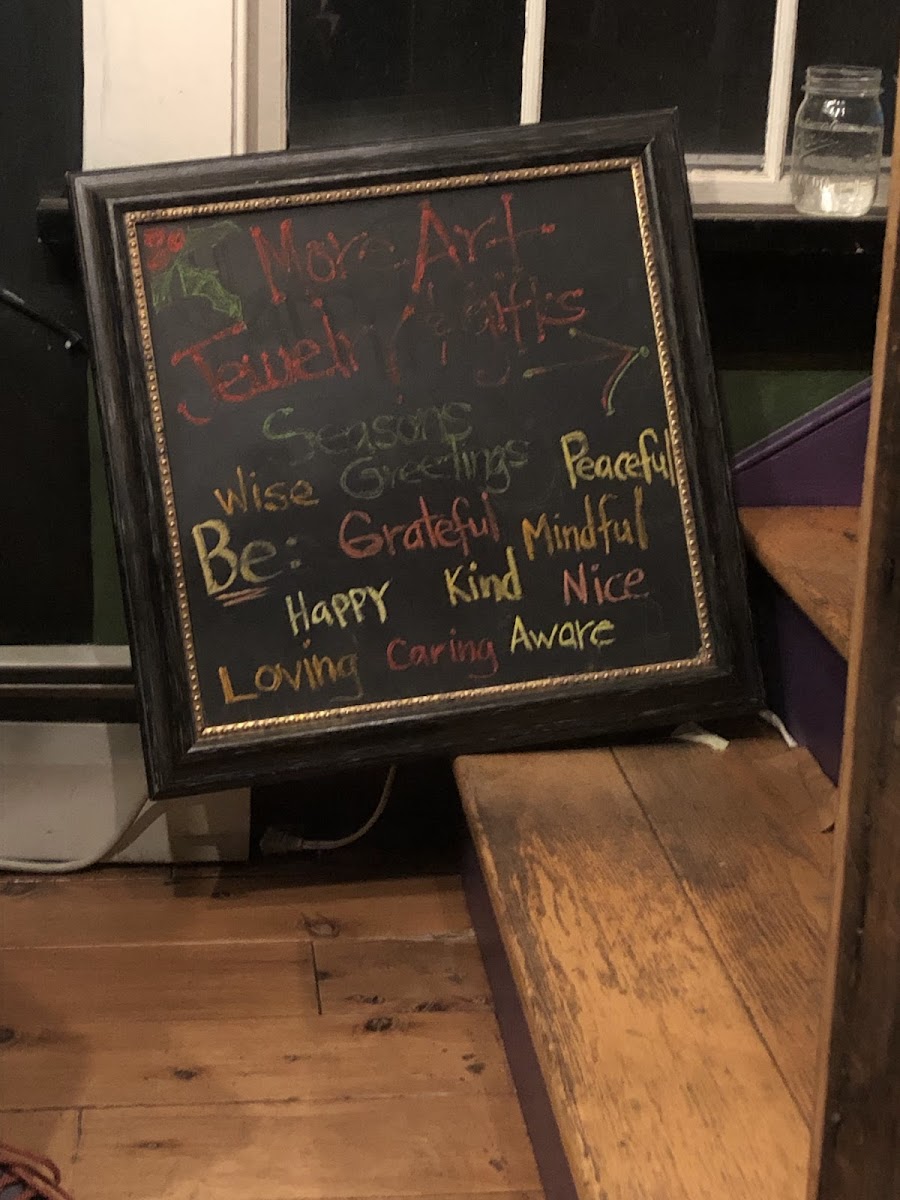 More Art
Jewelry / gifts
Seasons
Greetings
Wise Peaceful
Be: Grateful Mindful
Happy Kind Nice
Loving Caring Aware